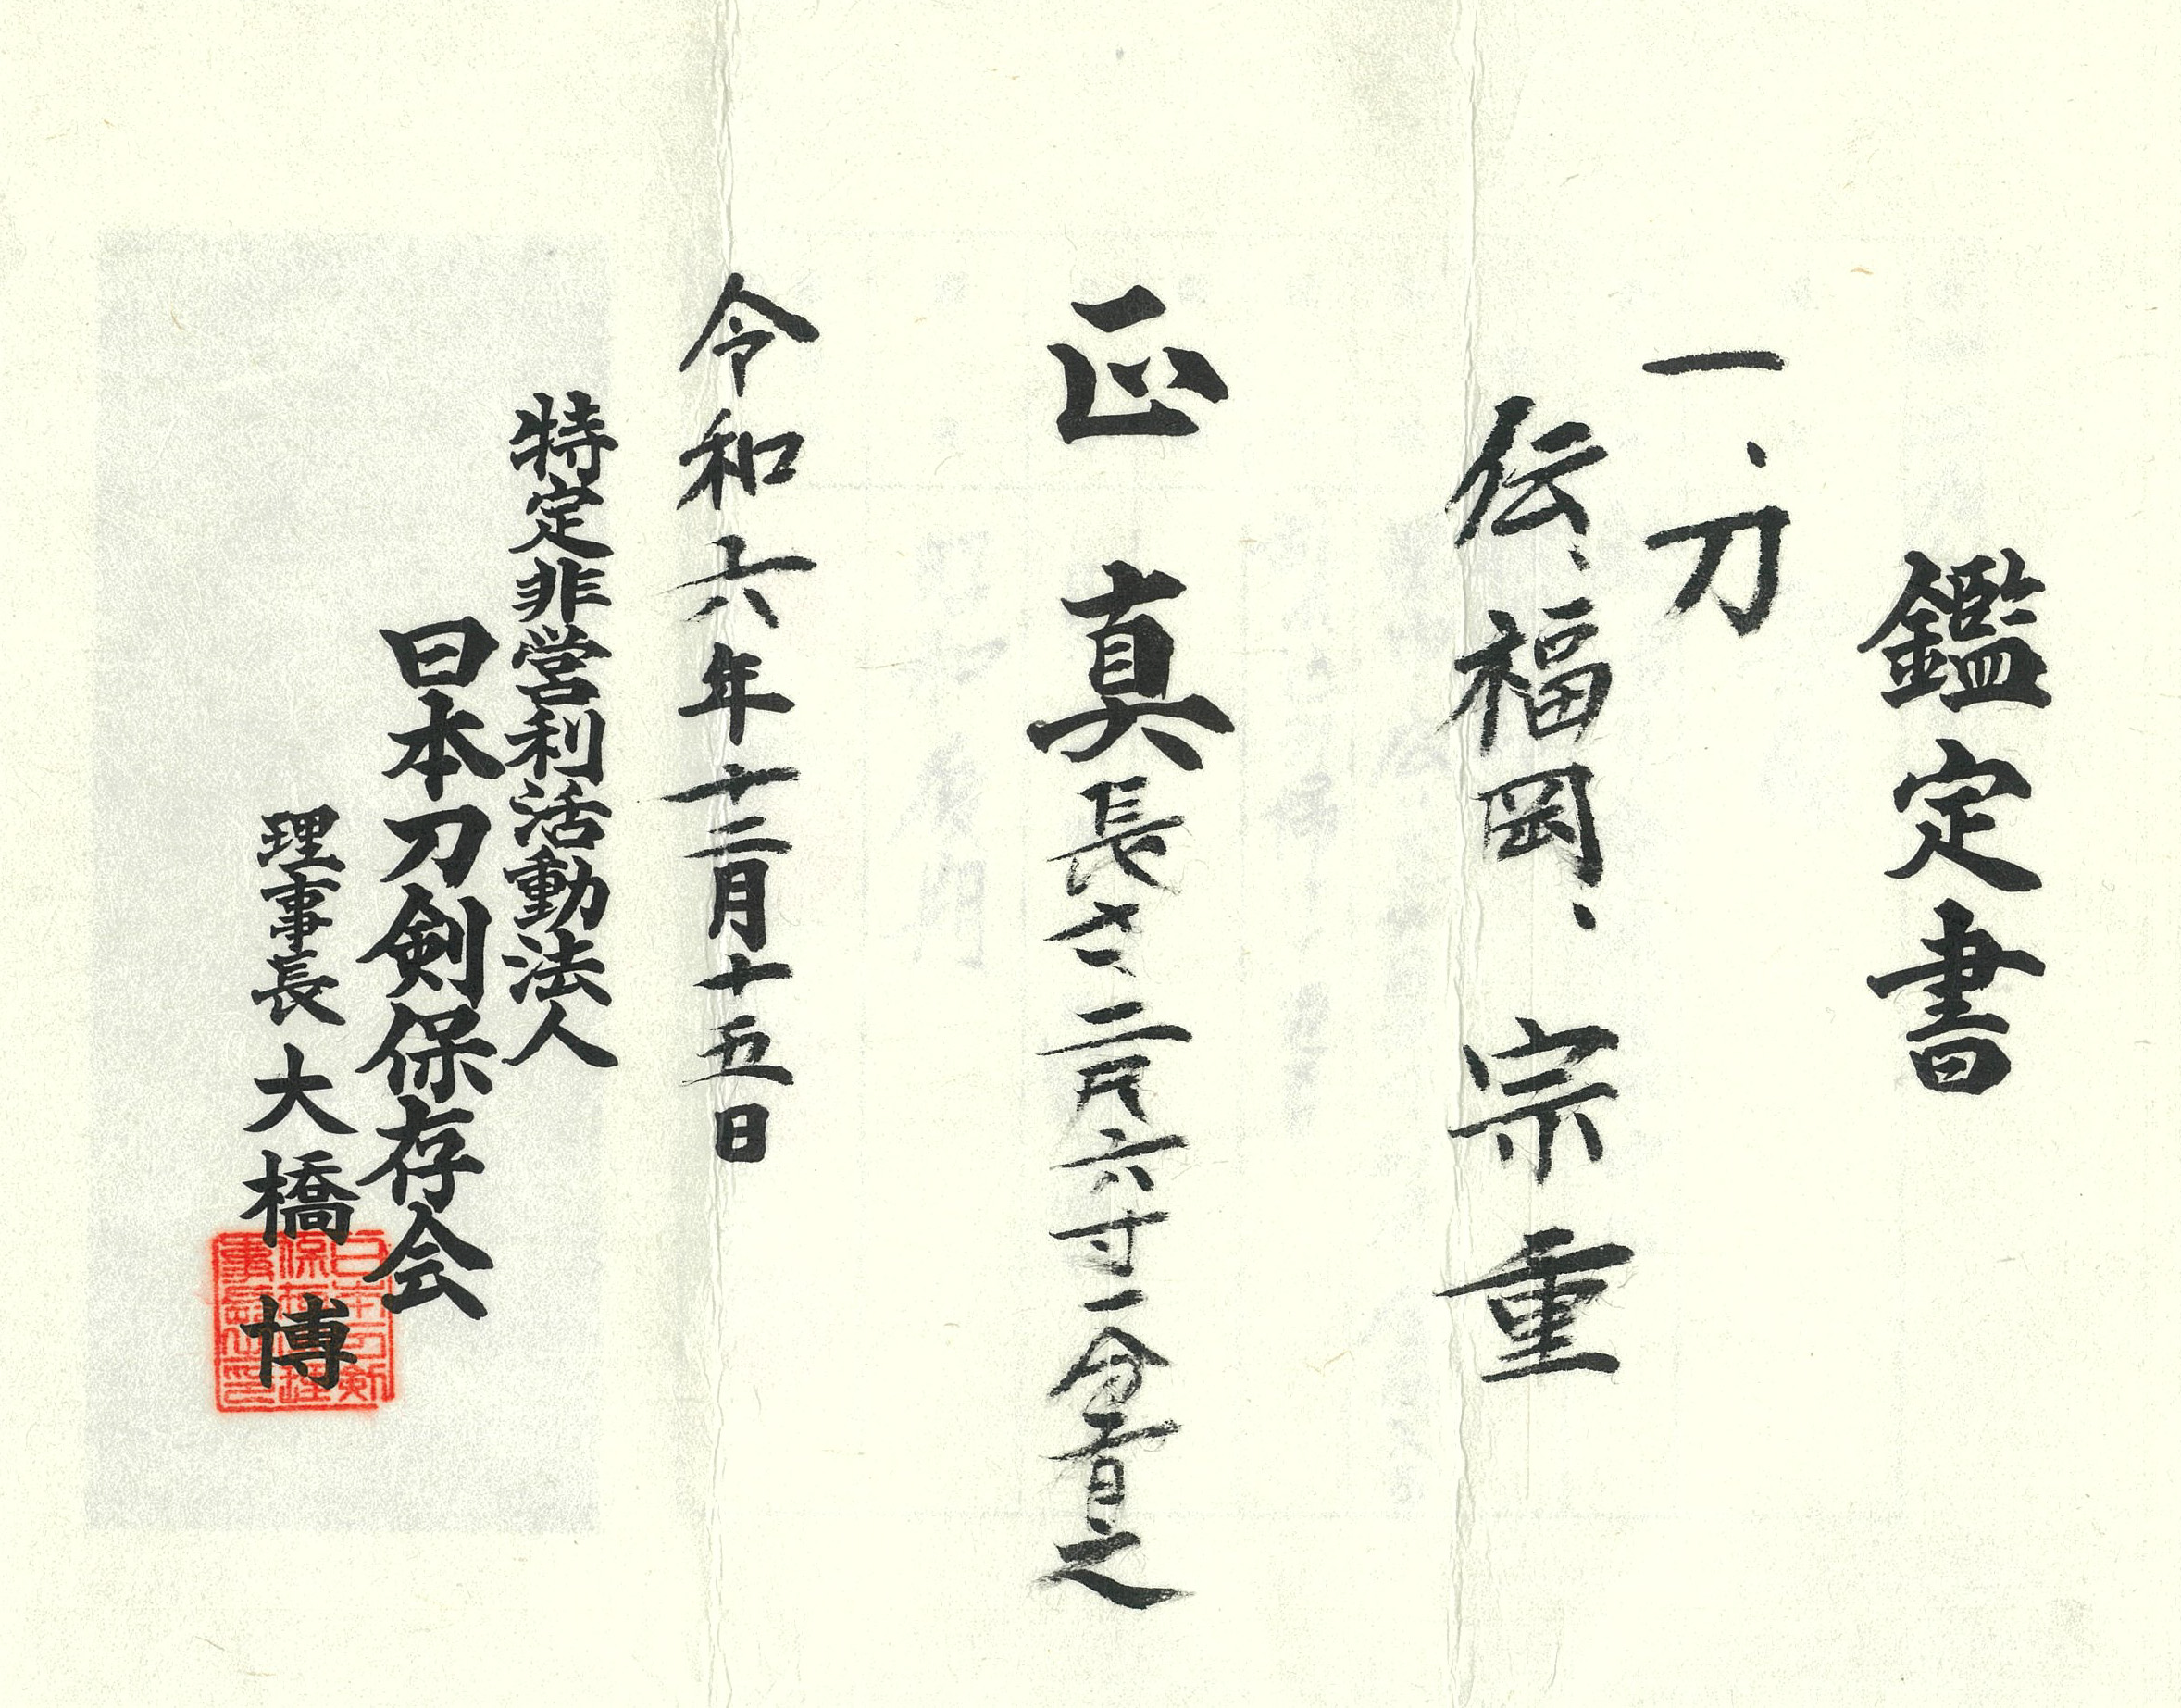 鑑定書
一、刀
伝、福岡、宗重
正真 長さ二尺六寸一分有之
令和六年十二月十五日
特定非営利活動法人
日本刀剣保存会
理事長 大橋 博